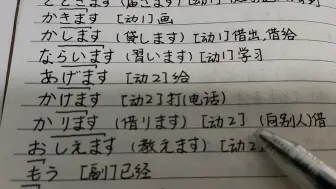 とどきます (届きます) [动1]
かきます [动1]画
かします (貸します) [动1]借出,借给
ならいます (習います) [动1]学习
あげます [动2]给
かけます [动2]打(电话)
かります (借ります) [动2] (向别人)借
おしえます (教えます) [动2]
もう [副]已经